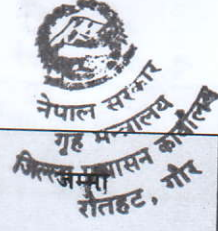 नेपाल सरकार
गृह मन्त्रालय
जिल्ला प्रशासन कार्यालय
जम्मा
रौतहट, गौर